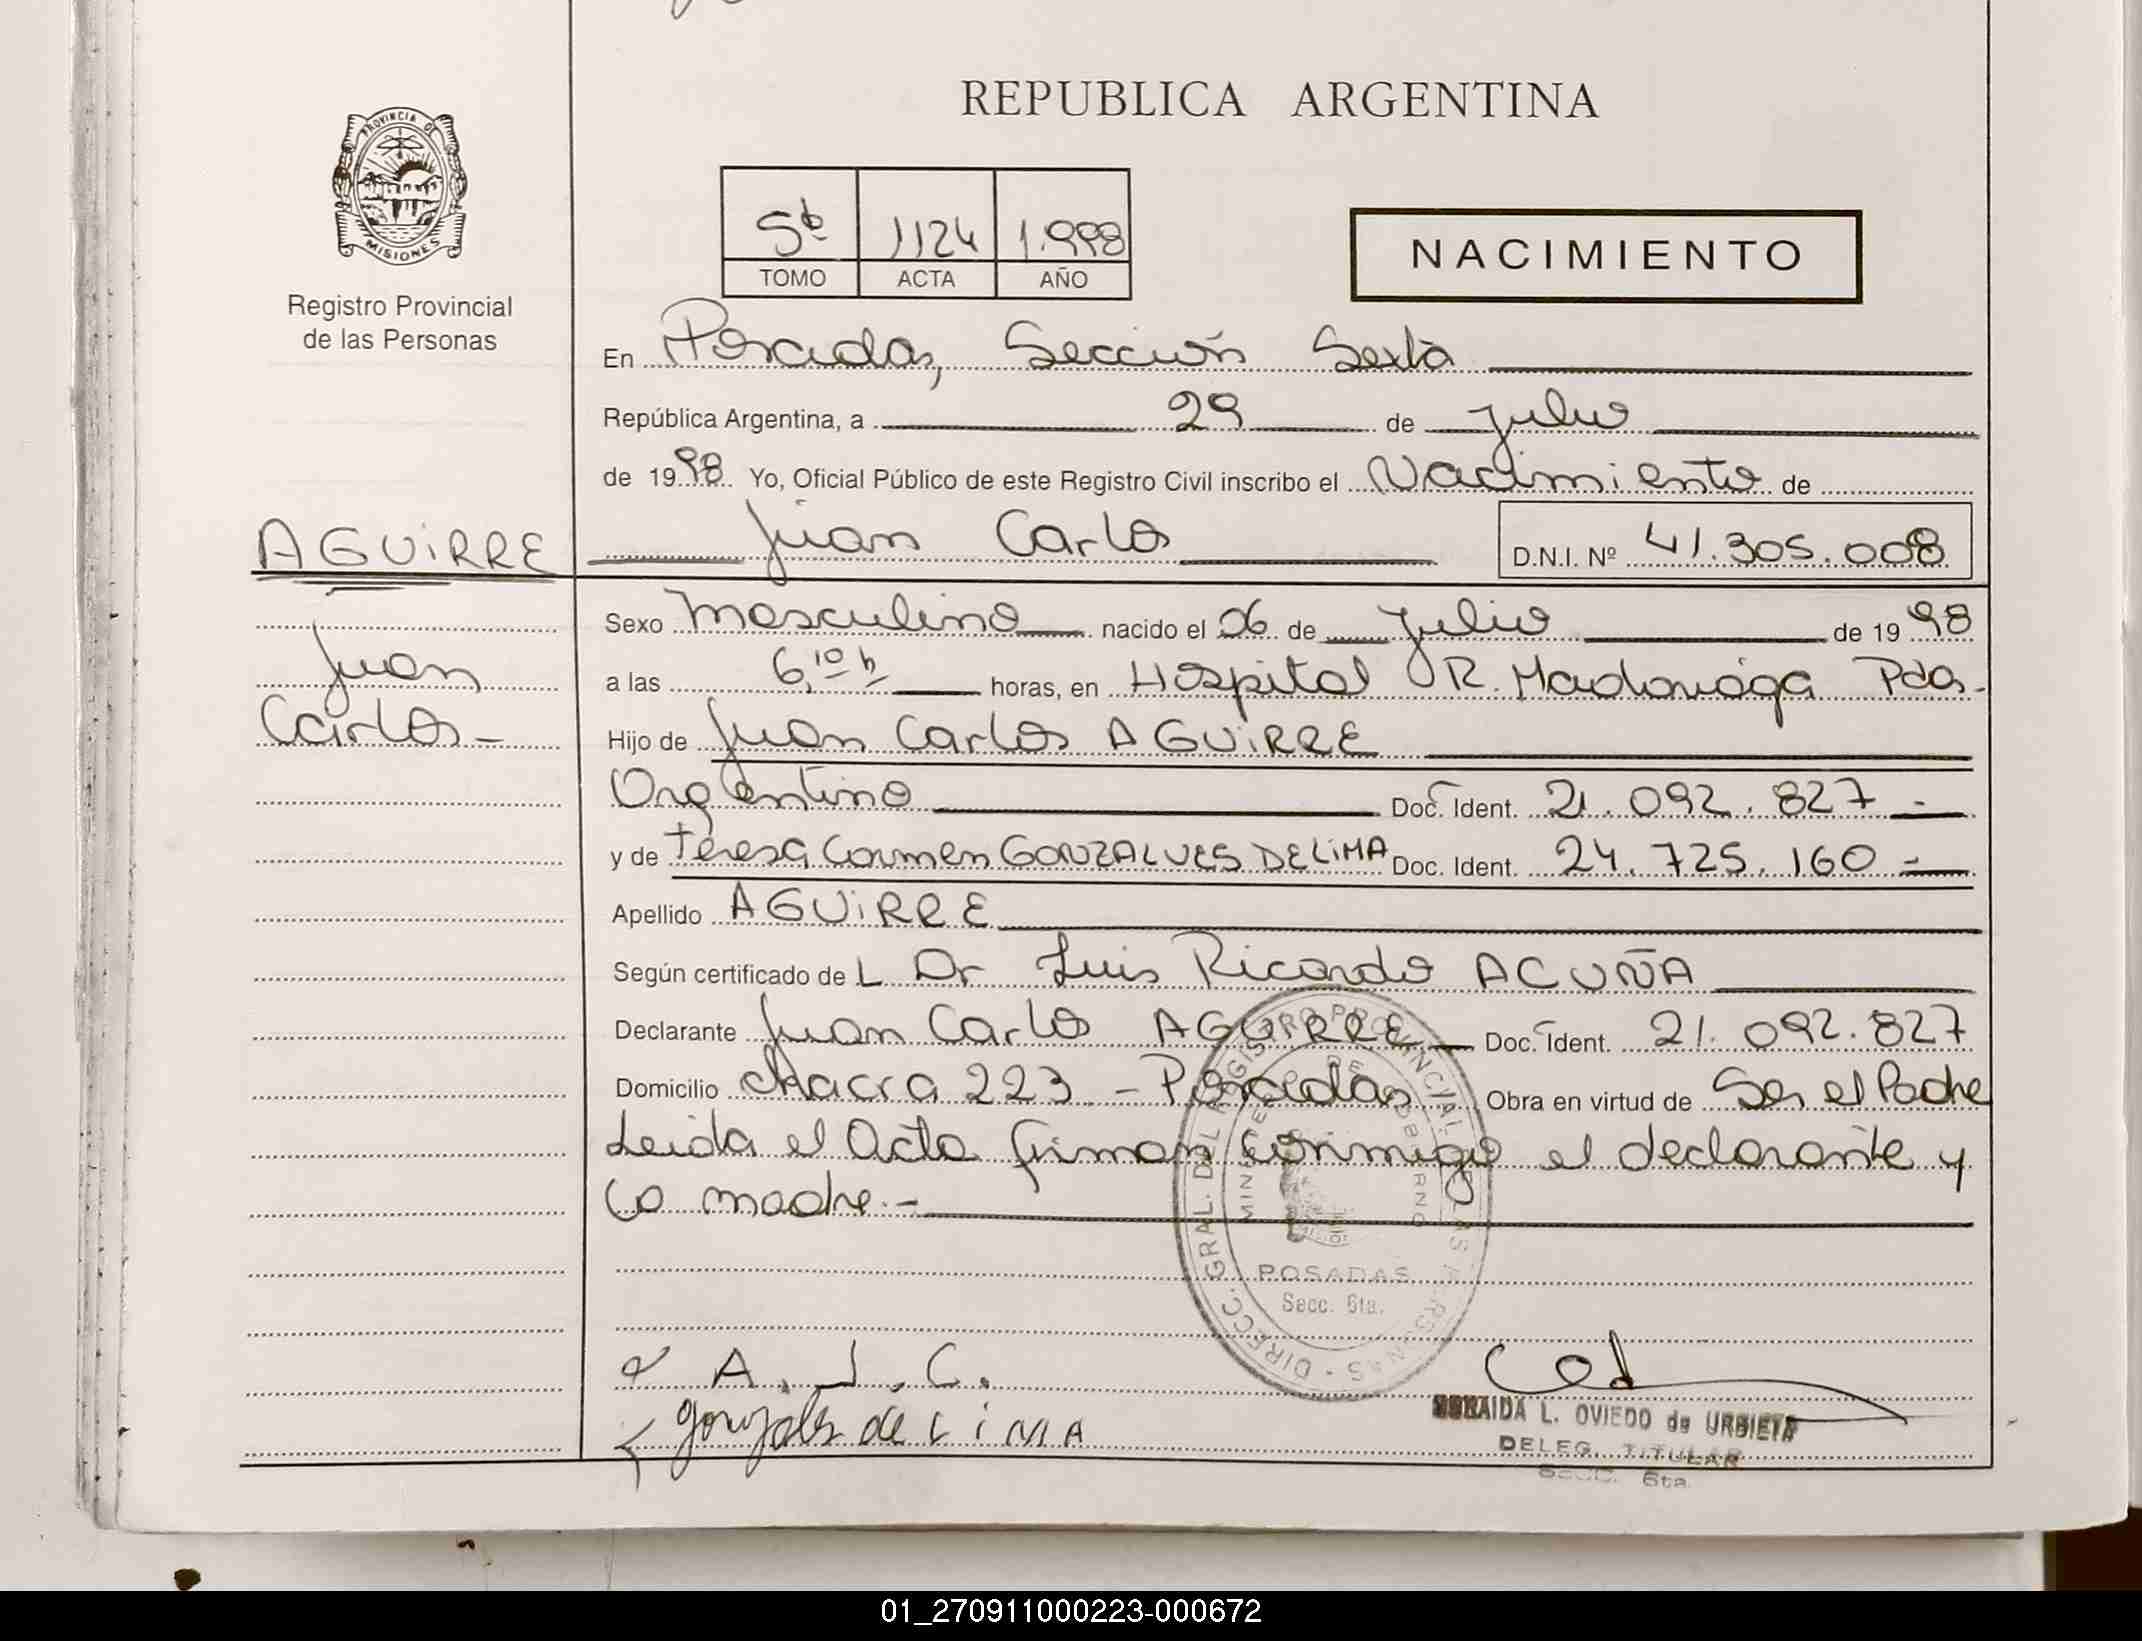 PROVINCIA DE
MISIONES
Registro Provincial
de las Personas
REPUBLICA ARGENTINA
5to 1124 1.998
TOMO ACTA AÑO
NACIMIENTO
En Posadas, Sección Sexta
República Argentina, a 29 de Julio
de 1998 Yo, Oficial Público de este Registro Civil inscribo el Nacimiento de
AGUiRRE Juan Carlos D.N.I. Nº 41.305.008
Sexo Masculino nacido el 06 de Julio de 1998
Juan
Carlos-
a las 6,10 h horas, en Hospital R. Madariaga Pdas.
Hijo de Juan Carlos AGUiRRE
Argentino Doc. Ident. 21.092.827
y de Teresa Carmen GONZALVES DE LiMA Doc. Ident. 24.725.160
Apellido AGUiRRE
Según certificado de L Dr Luis Ricardo ACUÑA
Declarante Juan Carlos AGUIRRE Doc. Ident. 21.092.827
Domicilio Chacra 223 - Posadas Obra en virtud de Ser el Padre
Leida el Acta firman conmigo el declarante y
la madre.-
DIRECC. GRAL. DEL REGISTRO PROVINCIAL DE LAS PERSONAS
POSADAS
Secc. 6ta.
A. J. C.
de LiMA
L. OVIEDO de URBIETA
DELEG. TITULAR
SECC. 6ta
01_270911000223-000672